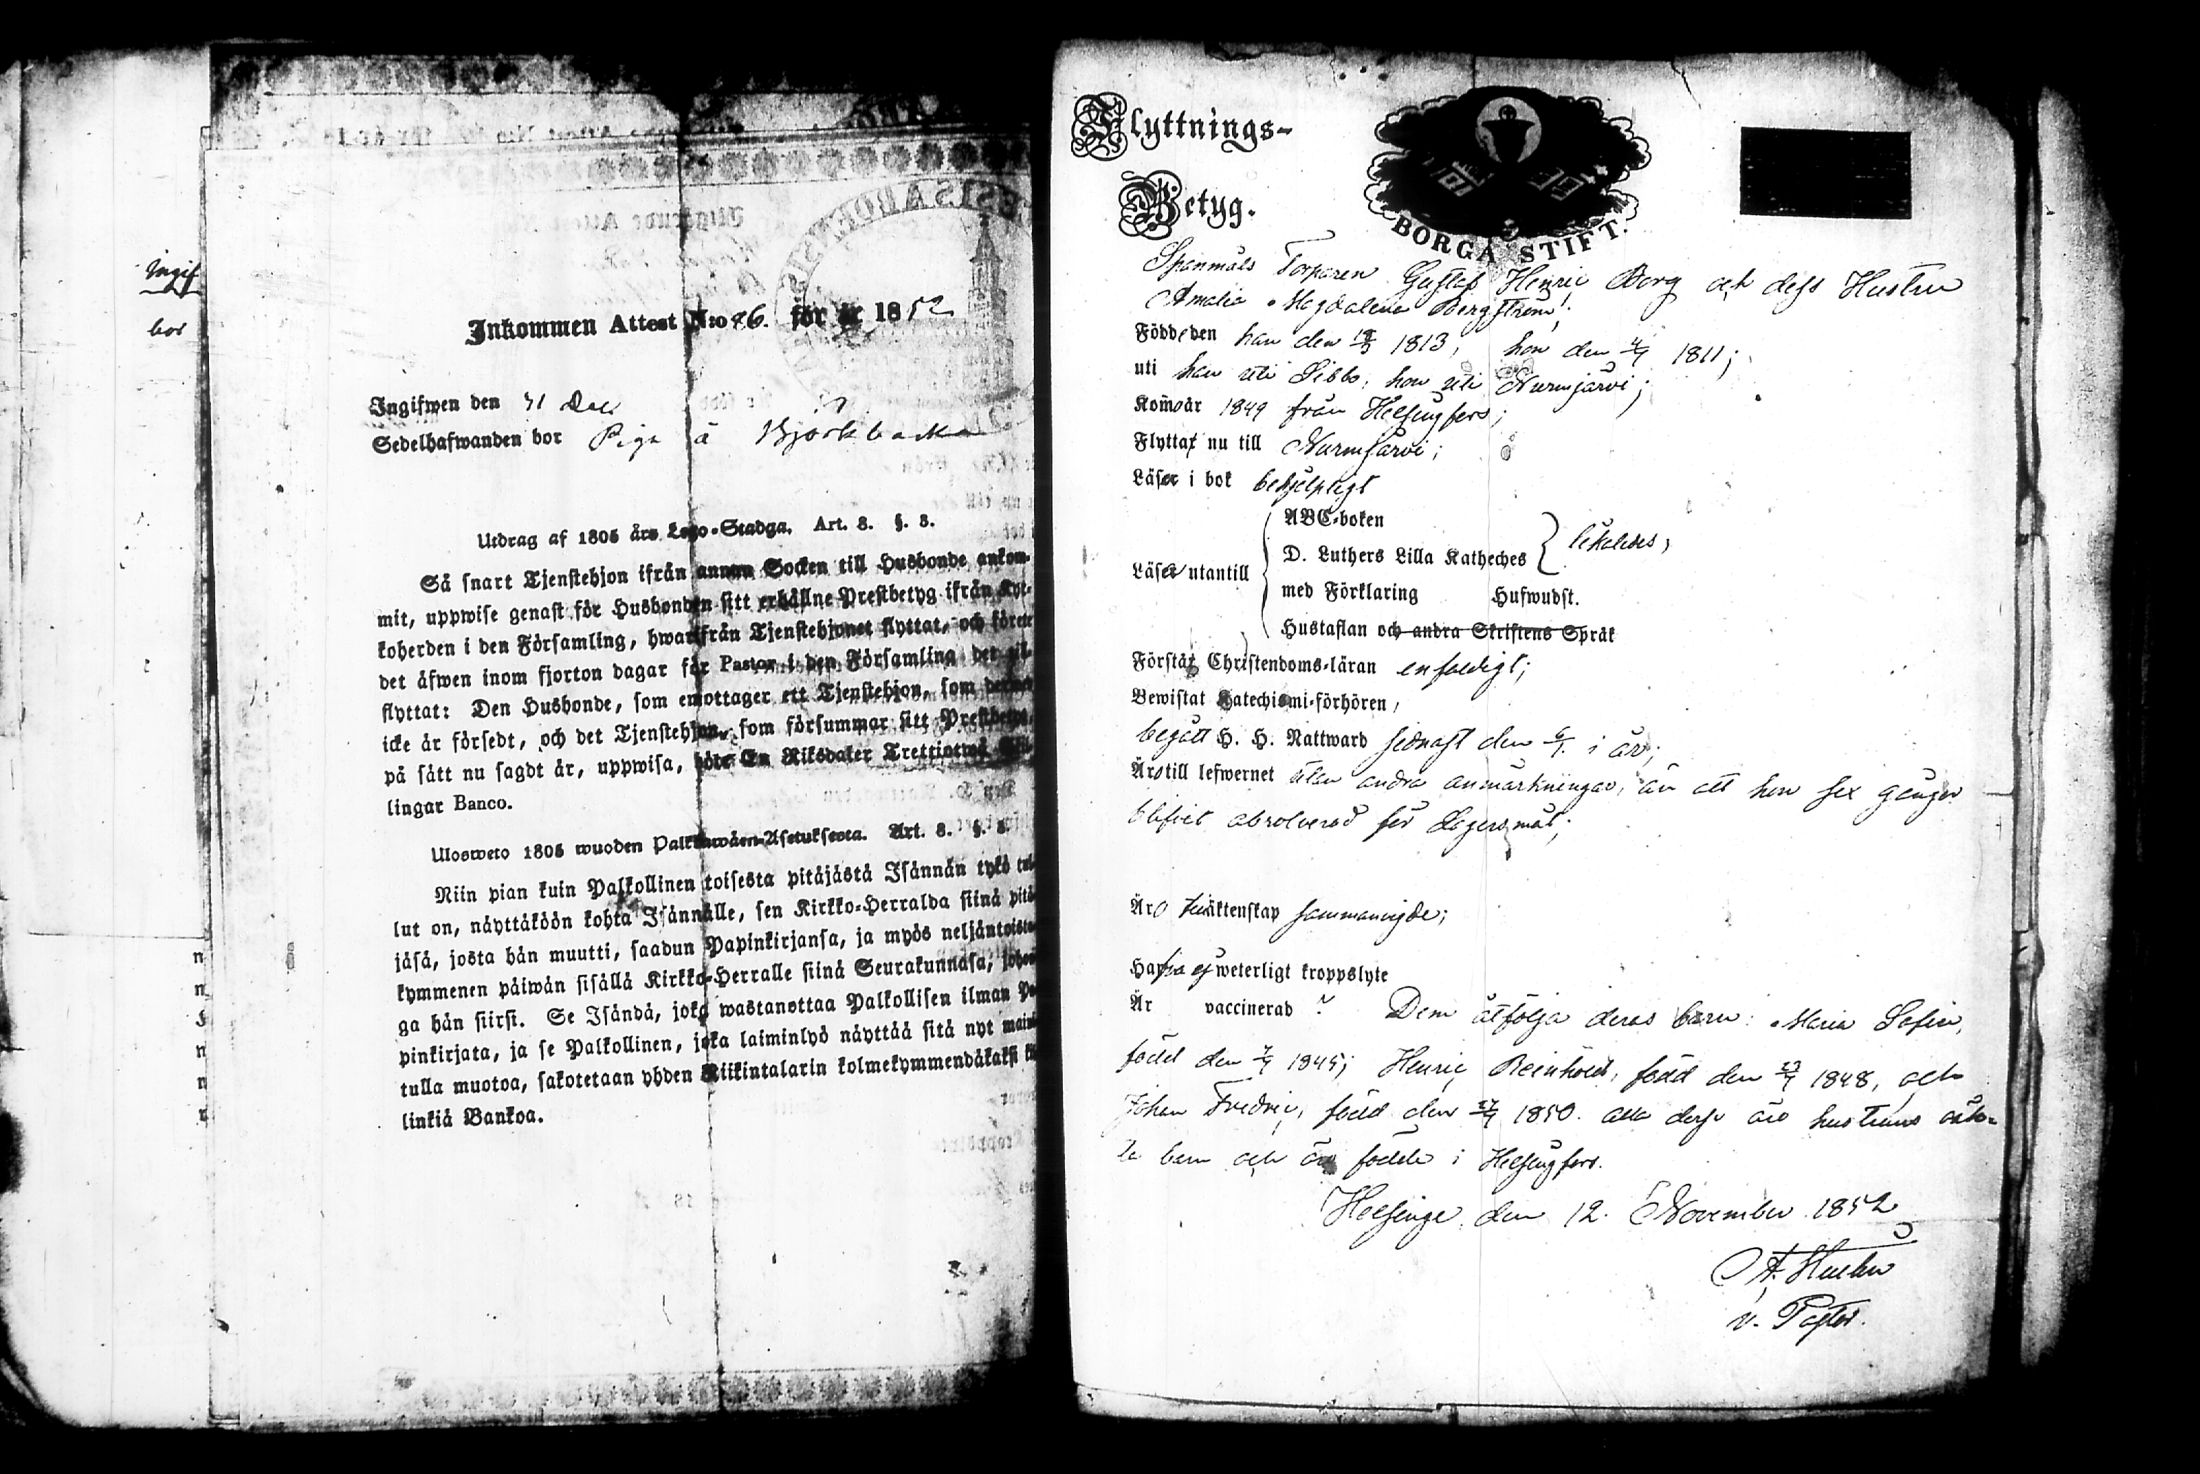 Ingif
bor
Inkommen Attest N:o 46. för år 1852
Ingifwen den 31 Dec
Sedelhafwanden bor Piga å Björkbacka
Utdrag af 1805 års Lego-Stadga. Art. 8. §. 3.
Så snart Tjenstehjon ifrån annan Socken till Husbonde ankom-
mit, uppwise genast för Husbonden sitt erhållne Prestbetyg ifrån Kyr-
koherden i den Församling, hwarifrån Tjenstehjonet flyttat, och förete
det äfwen inom fjorton dagar för Pastor i den Församling det till-
flyttat: Den Husbonde, som emottager ett Tjenstehjon, som dermed
icke är försedt, och det Tjenstehjon, som försummar sitt Prestbetyg,
på sätt nu sagdt är, uppwisa, böte En Riksdaler Trettiotwå Skil-
lingar Banco.
Ulosweto 1805 wuoden Palkkawäen-Asetuksesta. Art. 8. §. 3.
Niin pian kuin Palkollinen toisesta pitäjästä Isännän tykö tul-
lut on, näyttäköön kohta Isännälle, sen Kirkko-Herralda siinä pitä-
jäsä, josta hän muutti, saadun Papinkirjansa, ja myös neljäntoista-
kymmenen päiwän sisällä Kirkko-Herralle siinä Seurakunnasa, johon-
ga hän siirsi. Se Isändä, joka wastanottaa Palkollisen ilman Pa-
pinkirjata, ja se Palkollinen, joka laiminlyö näyttää sitä nyt maini-
tulla muotoa, sakotetaan yhden Riikintalarin kolmekymmendäkaksi kil-
linkiä Bankoa.
Flyttnings-
Betyg.
BORGÅ STIFT.
Spanmåls Torparen Gustaf Henric Borg och dess Hustru
Amalia Magdalena Bergström;
Födde den han den 18/3 1813, hon den 4/7 1811;
uti han uti Sibbo, hon uti Nurmijärvi;
Kom̄o år 1849 från Helsingfors;
Flytta nu till Nurmijärvi;
Läsa i bok behjelpligt
Läsa utantill
ABC-boken
D. Luthers Lilla Katheches
likaledes,
med Förklaring Hufwudst.
Hustaflan och andra Skriftens Språk
Förstå Christendoms-läran enfaldigt;
Bewistat Katechismi-förhören,
begått H. H. Nattward sednast den 6/1 i år;
Äro till lefwernet utan andra anmärkningar, än att hon sex gånger
blifvit absolverad för Lägersmål;
Äro i äktenskap sammanvigde;
Hafva ej weterligt kroppslyte
Är vaccinerad ? Dem åtfölja deras barn: Maria Sofia,
född den 7/9 1845; Henric Reinhold, född den 23/7 1848, och
Johan Fredric, född den 27/9 1850. alla desse äro hustruns oäk-
ta barn och äro födde i Helsingfors.
Helsinge den 12. November 1852
v. Pastor.